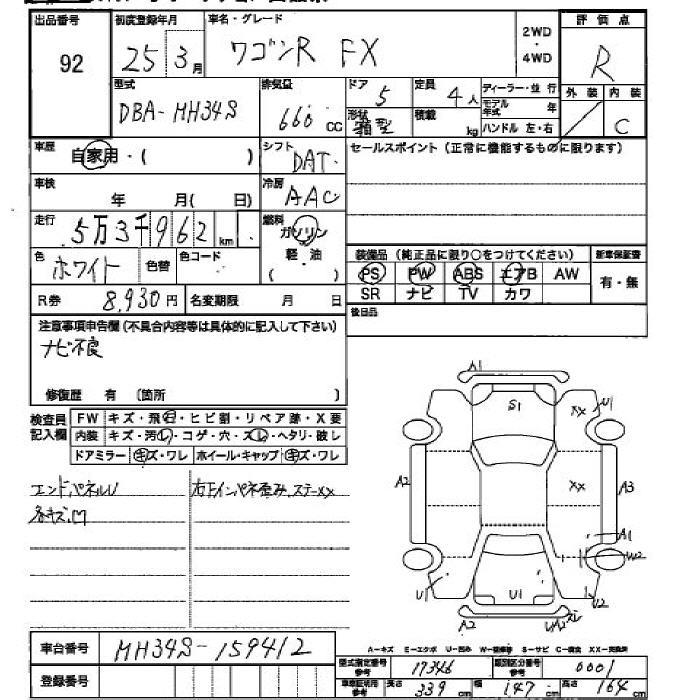 出品番号 初度登録年月 車名・グレード 2WD ・ 4WD 評価点
92 25年3月 ワゴンR FX R
型式 排気量 ドア 定員 ディーラー・並行 外装 内装
DBA-MH34S 660cc 5 4人 モデル年式 年
形状 箱型 積載 kg ハンドル 左・右 C
車歴 自家用・( ) シフト DAT セールスポイント(正常に機能するものに限ります)
車検 年 月( 日) 冷房 AAC
走行 5万3千962km 燃料 ガソリン
軽・油
( )
色 ホワイト 色替 色コード 装備品(純正品に限り○をつけてください) 新車保証書
PS PW ABS エアB AW 有・無
R券 8,930円 名変期限 月 日 SR ナビ TV カワ
注意事項申告欄(不具合内容等は具体的に記入して下さい) 後日品
ナビ不良
修復歴 有 〔箇所 〕
検査員記入欄 FW キズ・飛石・ヒビ割・リペア跡・X要
内装 キズ・汚レ・コゲ・穴・スレ・ヘタリ・破レ
ドアミラー キズ・ワレ ホイール・キャップ キズ・ワレ
エンドパネルU 右Fインパネ歪み,ステーXX
各キズ,凹
A1
S1 XX U1
A2 XX A3
A1
W2
U1 U1 U2
A2
車台番号 MH34S-159412
A-キズ E-エクボ U-凹み W-補修跡 S-サビ C-腐食 XX-交換済
登録番号 型式指定番号参考 17346 類別区分番号参考 0001
車庫証明用参考 長さ 339cm 幅 147cm 高さ 164cm